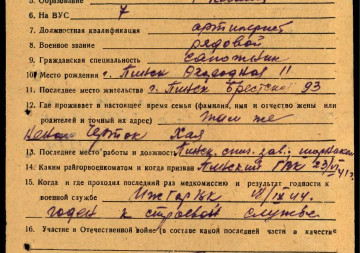 5. Образование
6. На ВУС 7
7. Должностная квалификация артилерист
8. Военное звание рядовой
9. Гражданская специальность сапожник
10. Место рождения г. Пинск Огородная 11
11. Последнее место жительства г. Пинск Брестская 93
12. Где проживает в настоящее время семья (фамилия, имя и отчество жены или
родителей и точный их адрес) там же
Черток Хая
13. Последнее место работы и должность Пинск.
14. Каким райгорвоенкоматом и когда призван Пинский ГВК 41 г.
15. Когда и где проходил последний раз медкомиссию и результат годности к
военной службе ИжГорВК IX 44.
годен к строевой службе
16. Участие в Отечественной войне (в составе какой последней части в качестве